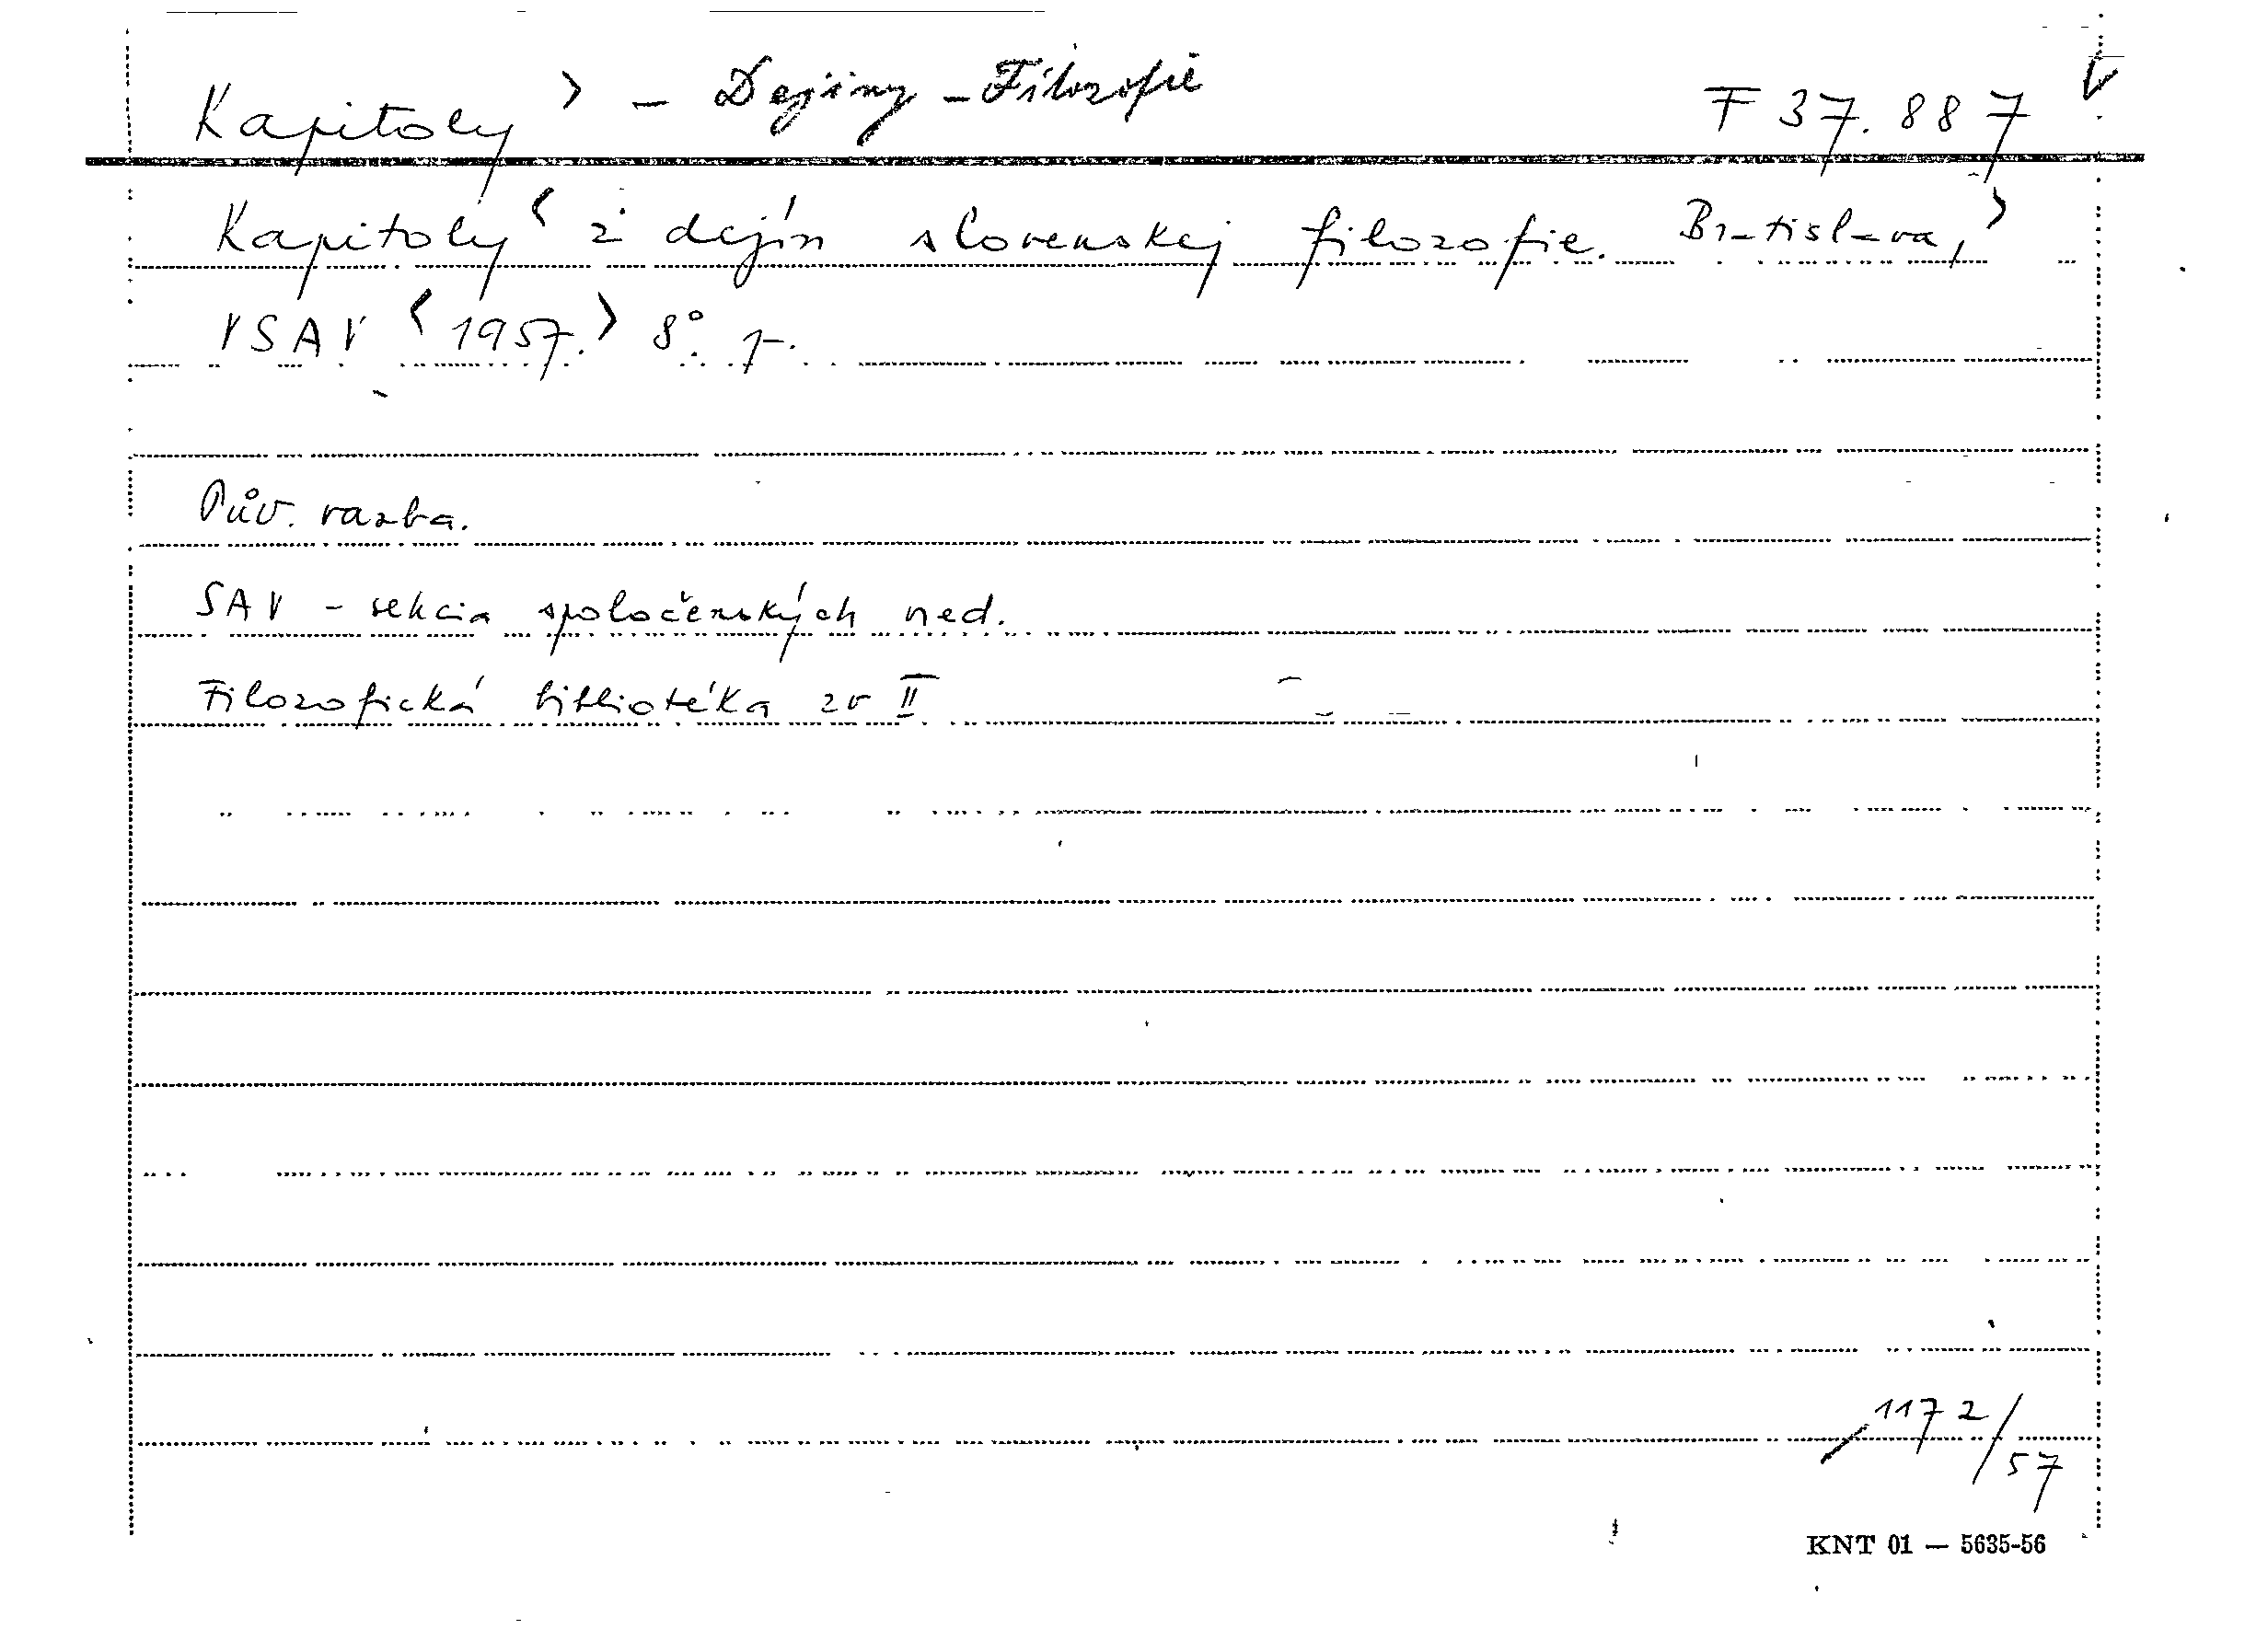 Kapitoly > - Dejiny - Filozofie F 37.887 V
Kapitoly < z dejín slovenskej filozofie. Bratislava, >
VSAV < 1957. > 8°.
Pův. vazba.
SAV - sekcia spoločenských ved.
Filozofická bibliotéka zv II
1172/57
KNT 01 — 5635-56